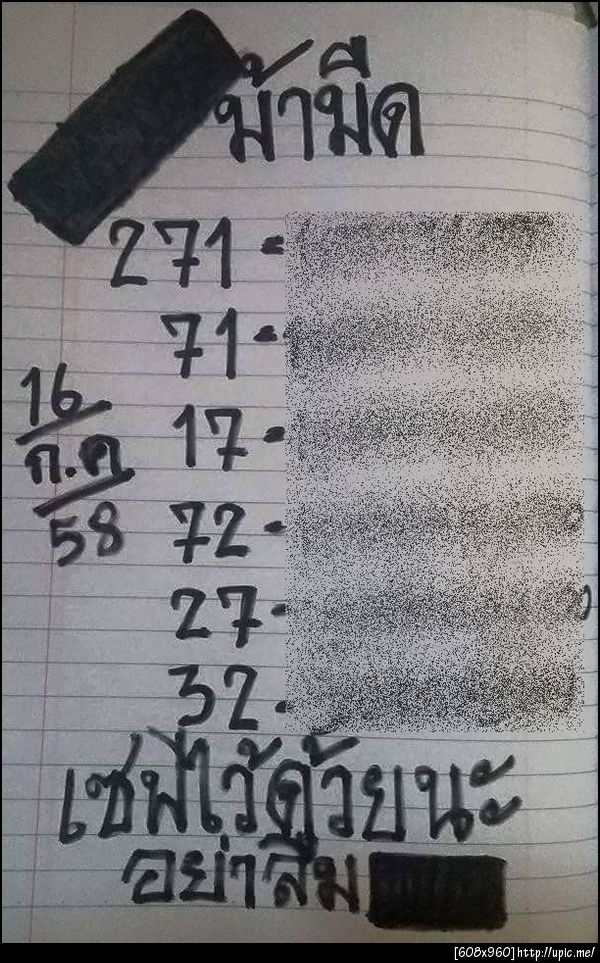 ม้ามืด
271 =
71 =
17 =
72 -
27 -
32 -
16
ก.ค
58
เซฟไว้ด้วยนะ
อย่าลืม
[608x960]http://upic.me/